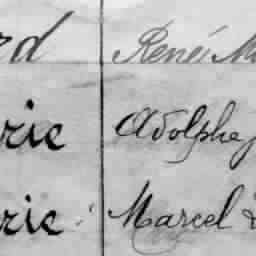 rd René M
rie Adolphe
rie Marcel